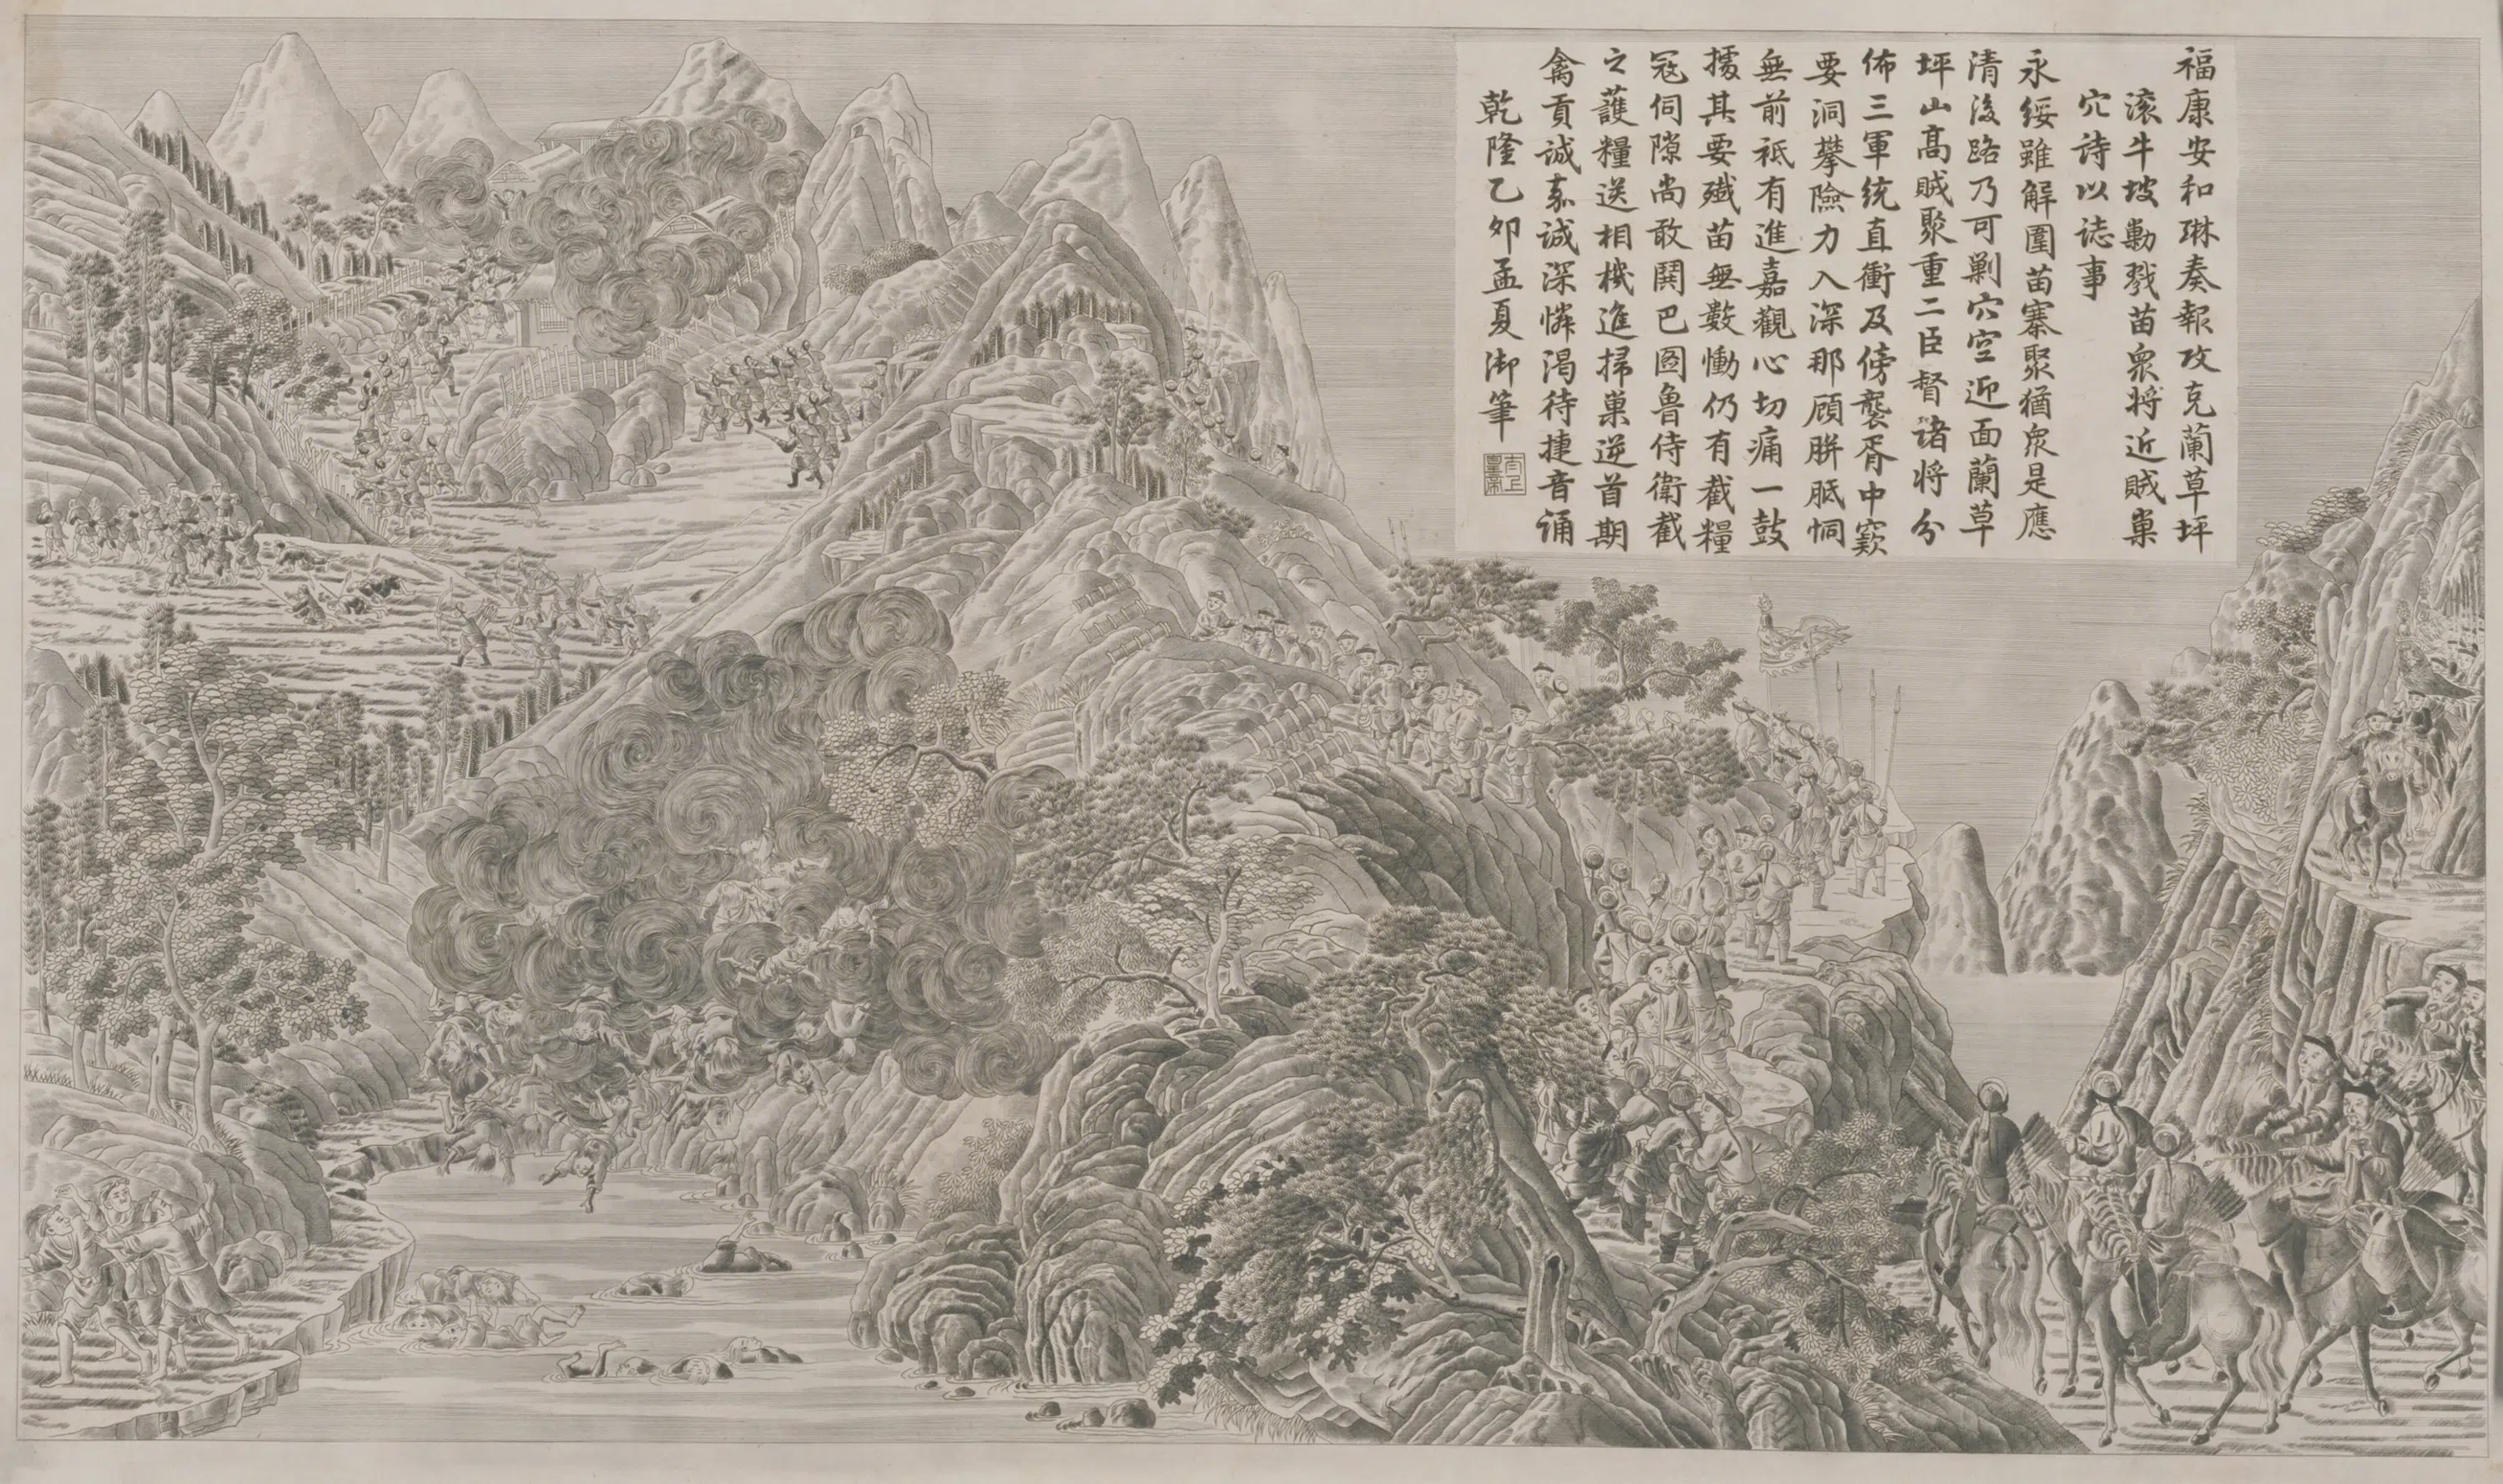 福康安和琳奏報攻克蘭草坪
滚牛坡勦戮苗衆将近賊巢
穴詩以誌事
永綏雖解圍苗寨聚猶衆是應
清後路乃可剿穴空迎面蘭草
坪山高賊聚重二臣督诸将分
佈三軍統直衝及傍襲胥中窽
要洞攀險力入深那顧胼胝恫
無前祗有進嘉觀心切痛一鼓
㩀其要殲苗無數慟仍有截糧
冦伺隙尚敢鬨巴圖魯侍衛截
之䕶糧送相機進掃巢逆首期
禽貢誠嘉誠深憐渴待捷音诵
乾隆乙夘孟夏御筆
太上皇帝